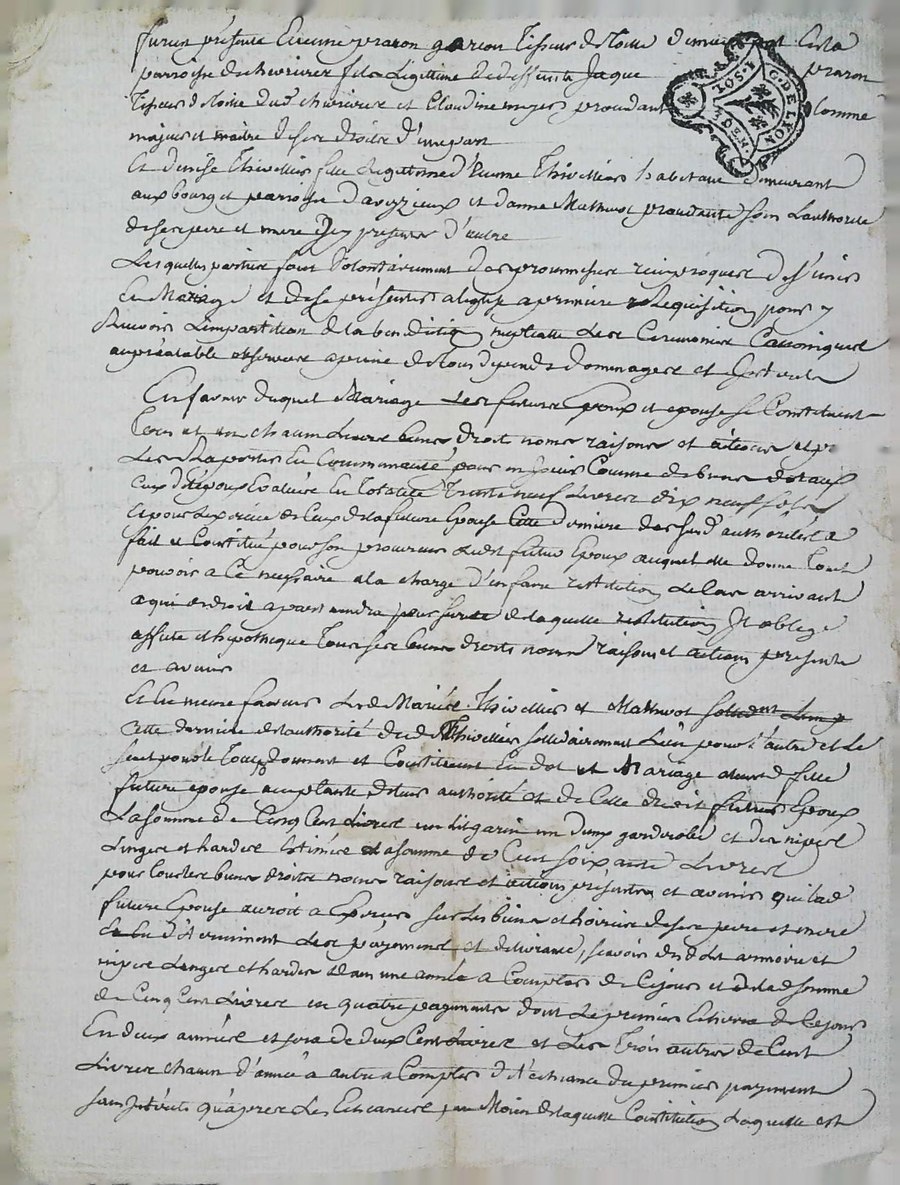 furent présents Etienne praron garcon Tisseur de Toille
parroisse de chevrieres fils Legitime de deffunt Jaque praron
G. DE LYON
1. SOL. 4 DEN.
Tisseur de Toille dud. chevrieres et Claudine comme
majeur et maitre de ses droits d'une part
Et denise Thivillier fille Legitime d'Etienne Thivillier habitant demeurant
aux bourg et parroisse d'aveizieux et d'anne Mathevot procedante sous L'authorité
de ses pere et mere icy presents d'autre
Lesquelles parties font Volontairement des promesses reciproques de s'unir
En Mariage et de se présenter a leglise a premiere Requisition pour y
Recevoir L'impartition de la benediction nuptialle Les Ceremonies Canoniques
au préalable observées a peine de tous depends dommages et
En faveur duquel Mariage Les futurs Epoux et epouse se Constituent
Tous et un chacun Leurs biens droits noms raisons et actions
Les En Communauté pour en jouir Comme de biens dotaux
Ceux d Epoux Evalués En Totalité Trente neuf Livres dix neuf sols
et pour de Ceux de la future Epouse Cette derniere authorisée a
fait et Constitué pour son procureur Led. futur Epoux auquel elle donne Tout
pouvoir a Ce necessaire a la charge d'en faire restitution Le Cas arrivant
a qui de droit apartiendra pour sureté de laquelle restitution Il oblige
affecte et hypotheque Tous ses biens droits noms raisons et actions presents
et avenir
Et En meme faveur Lesd. Mariés Thivillier et Mathevot
Cette derniere de L'authorité dud. Thivillier sollidairement L'un pour l'autre et Le
seul pour le Tout donnent et Constituent En dot et Mariage a leurd. fille
future epouse acceptante de leur authorité et de Celle dudit futur Epoux
La somme de Cinq Cent Livres un Lit garni un garderobe et des nipes
Linges et hardes Estimés a la somme de Cent soixante Livres
pour tous les biens droits noms raisons et actions présents et avenir que lad.
future Epouse auroit a Esperer sur Les biens et hoiries de ses pere et mere
Les payements et delivrance, sçavoir desd. Lit armoire et
nipes Linges et hardes dans une année a Compter de Cejour et de lad. somme
de Cinq Cent Livres en quatre payements dont Le premier Echerra de Cejour
En deux années et sera de deux Cent Livres et Les Trois autres de Cent
Livres chacun d'année a autre a Compter de l'echeance du premier payement
sans Interets qu'apres Les Echeances Moien de laquelle Constitution Laquelle est